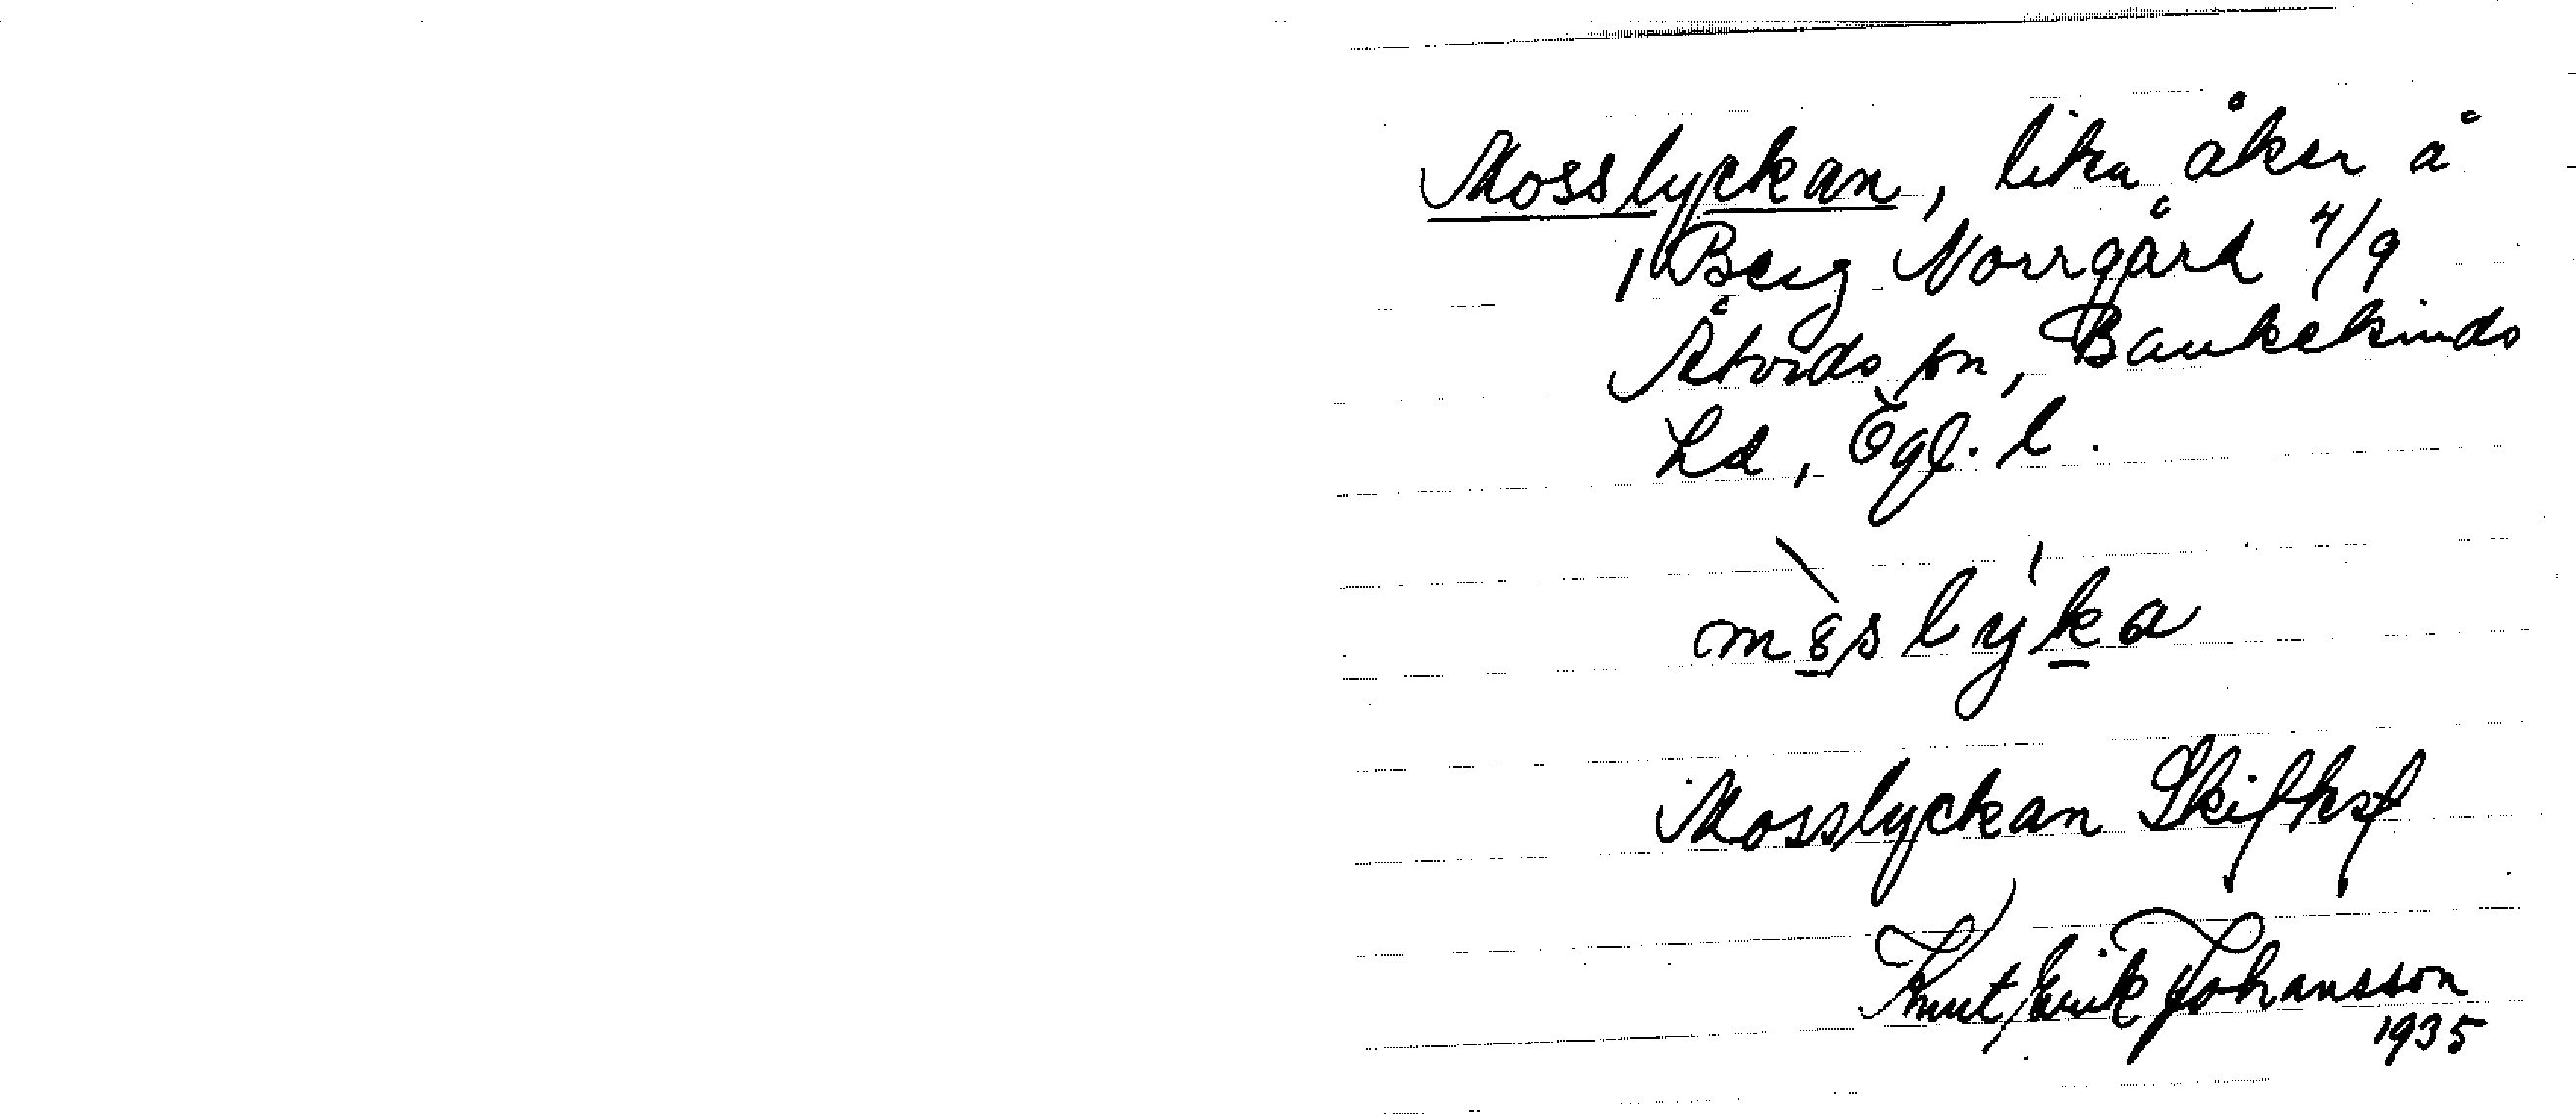 Mosslyckan, liten åker å
1 Berg Norrgård 4/9
Åtvids sn, Bankekinds
hd, Ögl. l.
mosly̍ka
Mosslyckan Skifteskf
Knut Erik Johansson
1935